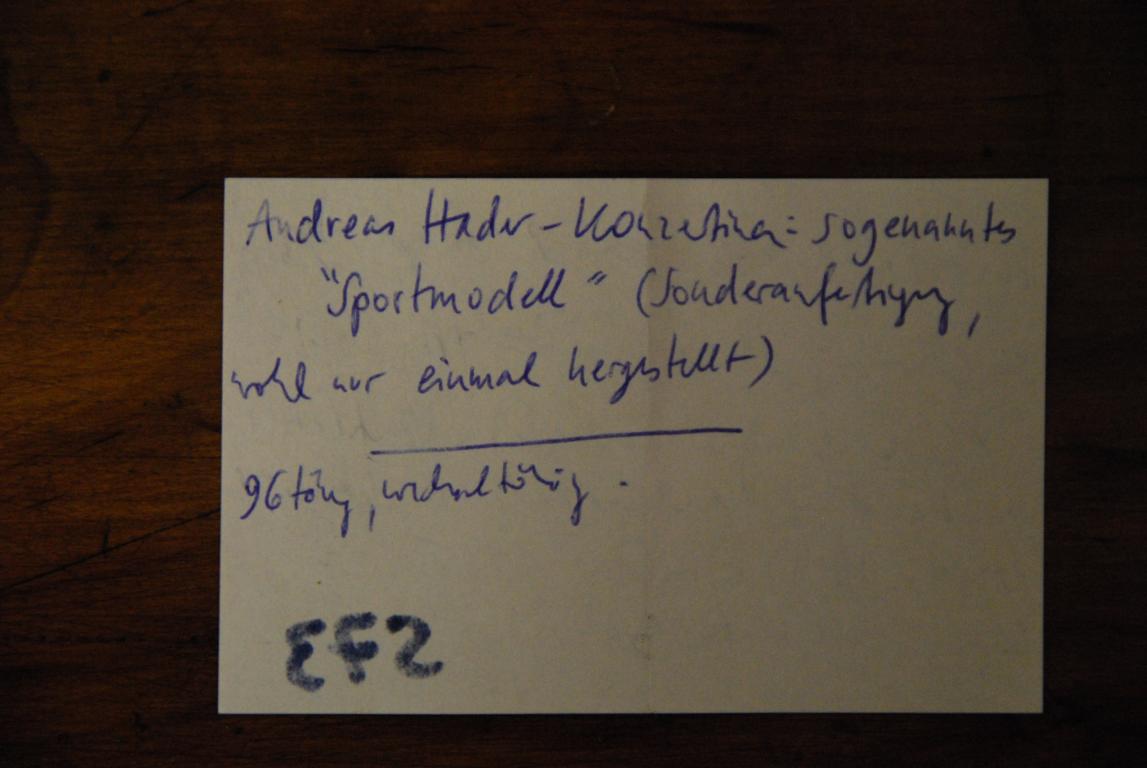 Andreas Hader-Konzertina: sogenanntes
"Sportmodell" (Sonderanfertigung,
wohl nur einmal hergestellt)
96tönig, wechseltönig.